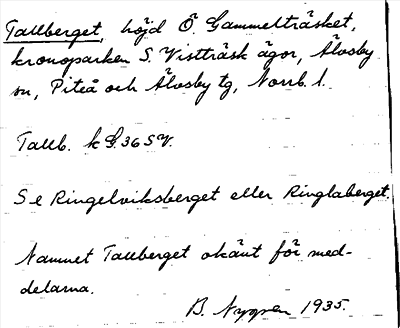 Tallberget, höjd Ö. Gammelträsket,
kronoparken S. Vistträsk ägor, Älvsby
sn, Piteå och Älvsby tg, Norrb. l.
Tallb. k G.36 SV.
Se Ringelviksberget eller Ringlaberget.
Namnet Tallberget okänt för med-
delarna.
B. Nygren 1935.